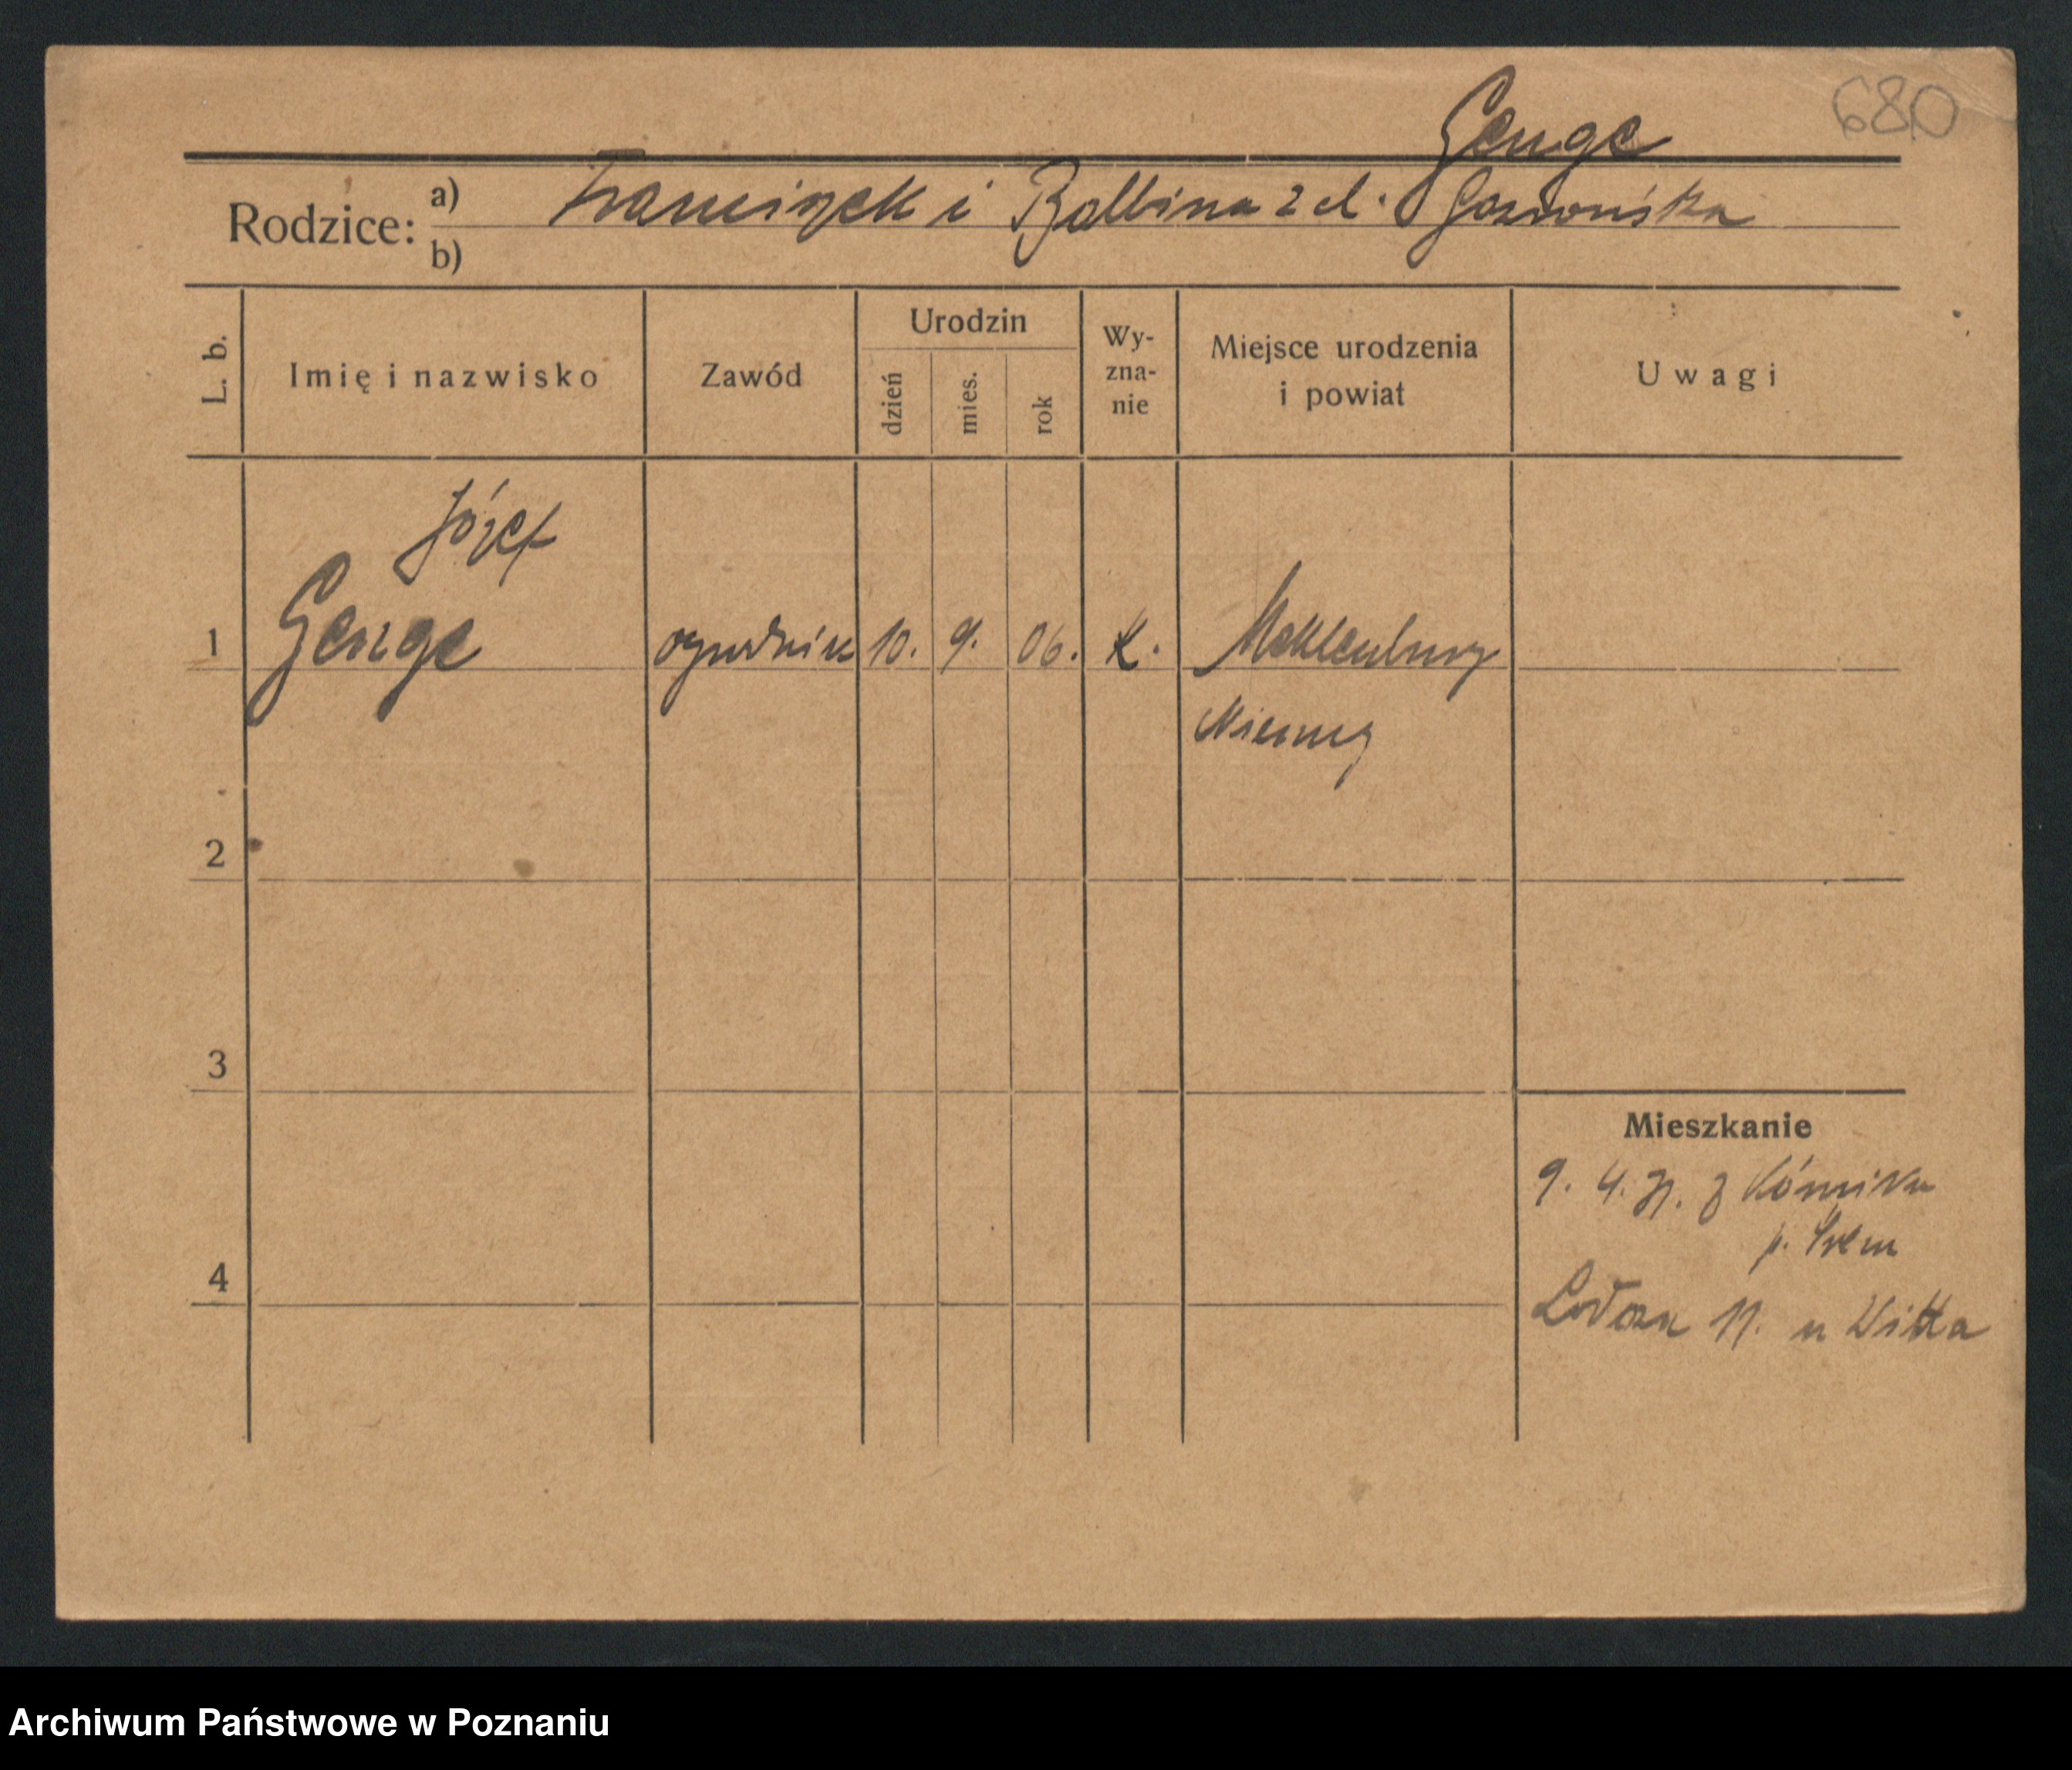 680
Genge
Rodzice: a) Franciszek i Balbina z d.
b)
L. b. Imię i nazwisko Zawód Urodzin dzień mies. rok Wy-zna-nie Miejsce urodzenia i powiat Uwagi
Józef
1 Genge ogrodnik 10. 9. 06. k. Meklenburg
Niemcy
2
3
Mieszkanie
9. 4. 31. z Kórnika
p. Śrem
4
11. u Witta
Archiwum Państwowe w Poznaniu